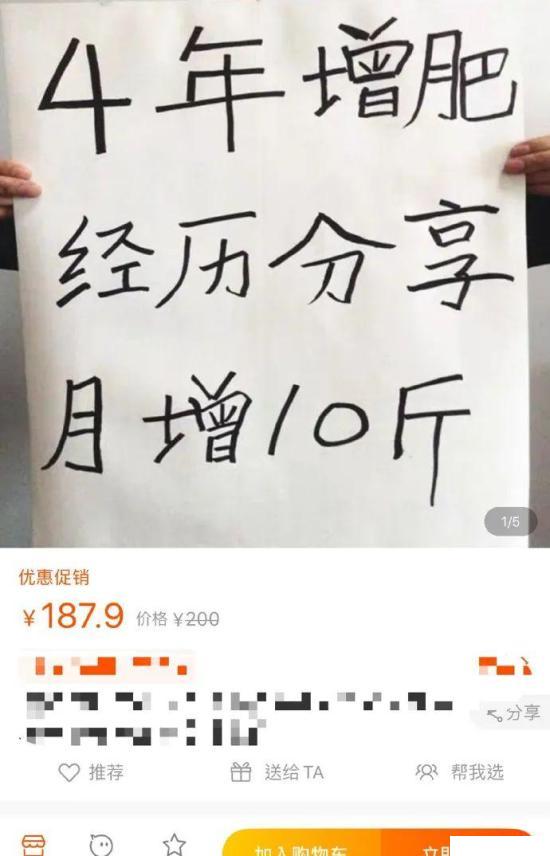 4年增肥
经历分享
月增10斤
1/5
优惠促销
¥187.9 价格 ¥200
分享
推荐 送给TA 帮我选
加入购物车